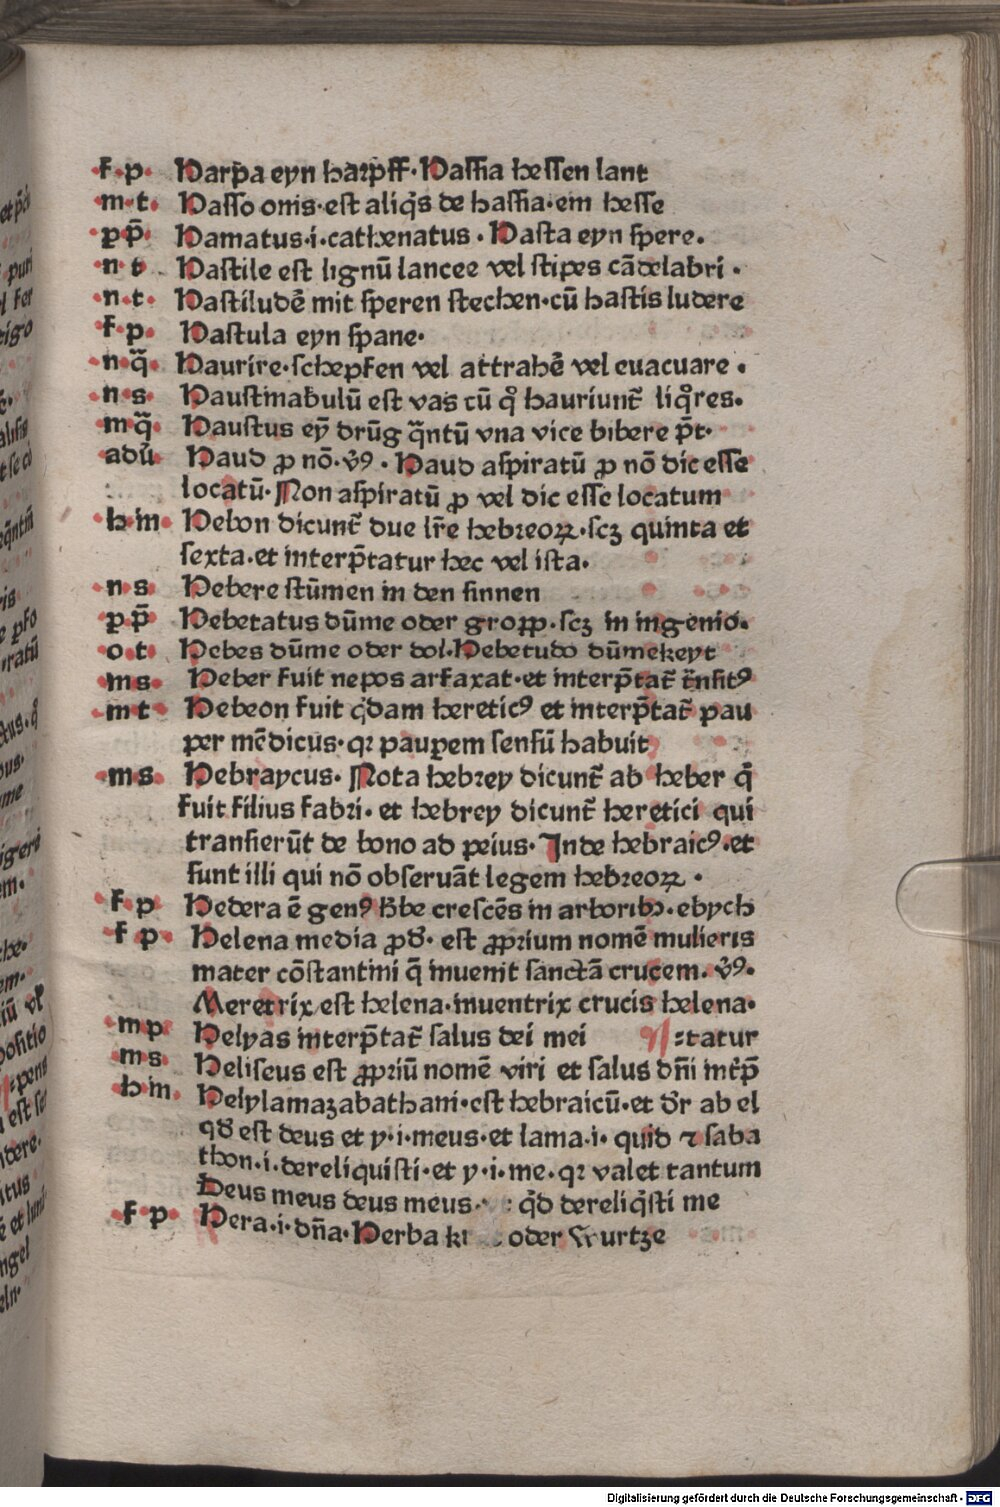 f·p· Harp̄a eyn harpff·Hassia hessen lant
m·t· Hasso onis·est aliq̄s de hassia·ein hesse
p̱p̄ Hamatus·i·cathenatus·Hasta eyn spere·
n·t Hastile est lignū lancee vel stipes cādelabri·
n·t· Hastiludē mit speren stechen·cū hastis ludere
f·p· Hastula eyn spane·
n·q̄ Haurire·schepfen vel attrahē vel euacuare·
n·s Haustinabulū est vas cū q° hauriunt̄ liq°res·
mq̄ Haustus eȳ drūg q̄ntū vna vice bibere p̄t·
adū Haud ꝓ nō·v̄ꝰ·Haud aspiratū ꝓ nō dic esse
locatū·Non aspiratū ꝓ vel dic esse locatum
h·in· Hebon dicunt̄ due lr̄e hebreoꝝ·scꝫ quinta et
sexta·et interp̄tatur hec vel ista·
n·s Hebere stūmen in den sinnen
p̱p̄ Hebetatus dūme oder groꝓp·scꝫ in ingenio·
o·t· Hebes dūme oder dol·Hebetudo dūmekeyt
ms· Heber fuit nepos arfaxat·et interp̄tat̄ tr̄nsitꝰ
mt· Hebeon fuit q̄dam hereticꝰ et interp̄tat̄ pau
per mēdicus·qꝛ paup̱em sensū habuit
ms· Hebraycus·Nota hebrey dicunt̄ ab heber q̄
fuit filius fabri·et hebrey dicunt̄ heretici qui
transierūt de bono ad peius·Inde hebraicꝰ·et
sunt illi qui nō obseruāt legem hebreoꝝ·
f·p Hedera ē genꝰ h̄be crescēs in arboribꝫ·ebych
f·p· Helena media ꝓd̄·est ꝓprium nomē mulieris
mater cōstantini q̄ inuenit sanctā crucem·v̄ꝰ·
Meretrix est helena·inuentrix crucis helena·
mp Helyas interp̄tat̄ salus dei mei ¶=tatur
ms· Heliseus est ꝓpriū nomē viri et salus dn̄i int̄p̄
h·in· Helylamazabathani·est hebraicū·et dr̄ ab el
qd̄ est deus et y·i·meus·et lama·i·quid ⁊ saba
thon·i·dereliquisti·et y·i·me·qꝛ valet tantum
Deus meus deus meus· q̄d dereliq̄sti me
f·p· Hera·i·dn̄a·Herba oder wurtze
Digitalisierung gefördert durch die Deutsche Forschungsgemeinschaft - DFG